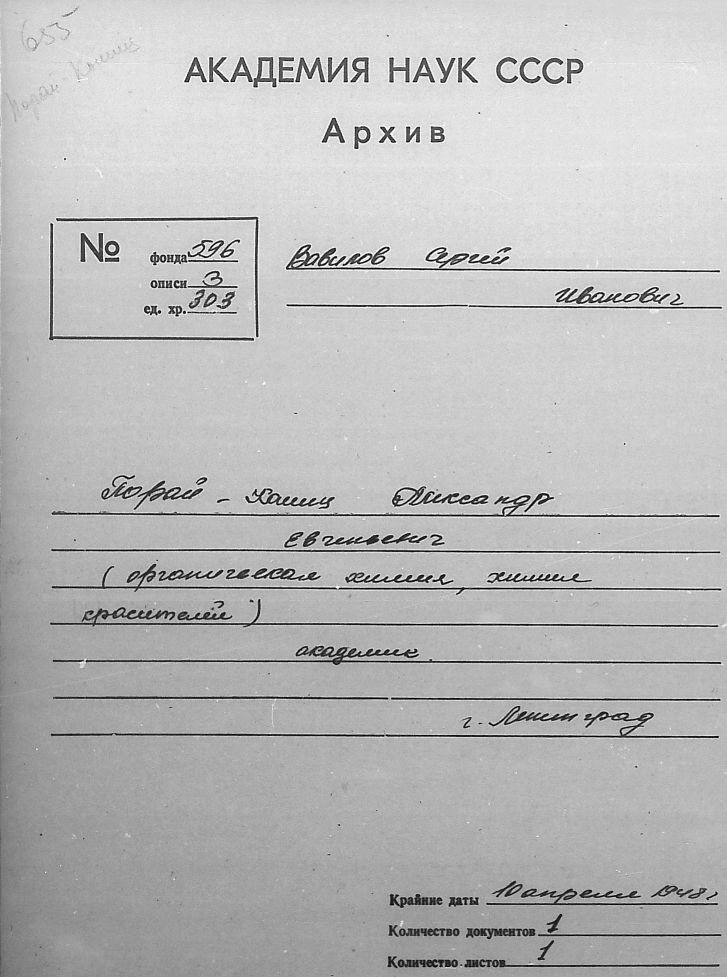 655
Порай-Кошиц
АКАДЕМИЯ НАУК СССР
Архив
№ фонда 596
описи 3
ед. хр. 303
Вавилов Сергей
Иванович
Порай-Кошиц Александр
Евгеньевич
(органическая химия, химия
красителей)
академик.
г. Ленинград
Крайние даты 10 апреля 1948 г
Количество документов 1
Количество листов 1